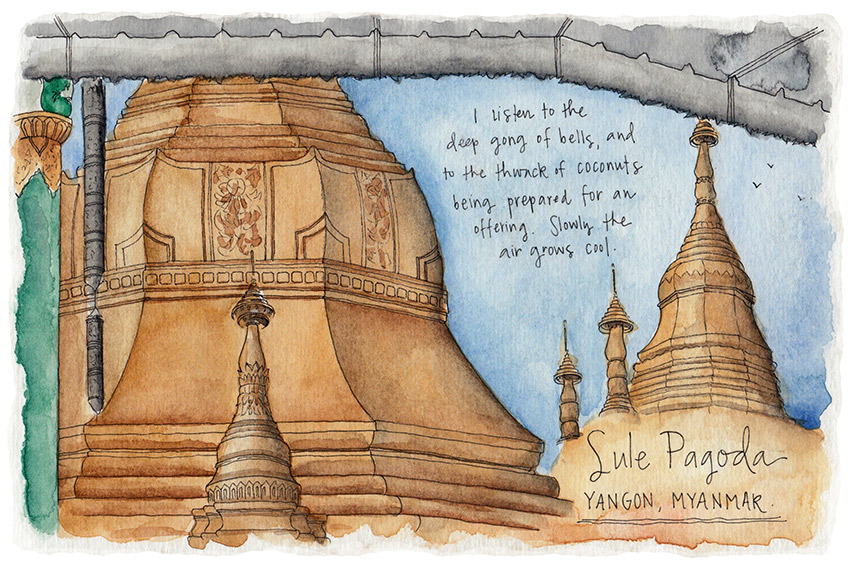 I listen to the
deep gong of bells, and
to the thwack of coconuts
being prepared for an
offering. Slowly the
air grows cool.
Sule Pagoda
YANGON, MYANMAR.